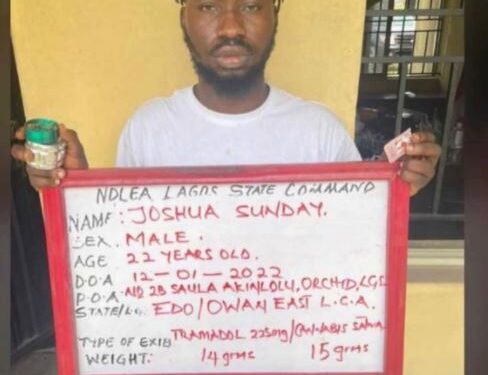 NDLEA LAGOS STATE COMMAND
NAME: JOSHUA SUNDAY.
SEX. MALE.
AGE 22 YEARS OLD.
D.O.A 12-01-2022
P.O.A-NO 2B SAULA AKINLOLU, ORCHID, LGS
STATE/LG. EDO/OWAN EAST L.G.A.
TYPE OF EXIB TRAMADOL 225mg/CANNABIS SATIVA
WEIGHT: 14grms 15grms